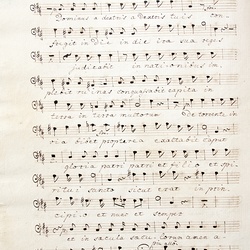 Dominus a dextris a dextris tuis con-
fregit in Die in die irae suae reges
judicabit in nationibus im-
plebit ruinas conquassabit capita in
terra in terra multorum De torrente in
via bibet propterea exaltabit caput
gloria patri patri et filio et spi-
ritui sancto sicut erat in prin-
cipio et nunc et semper
et in saecula saeculorum amen a-